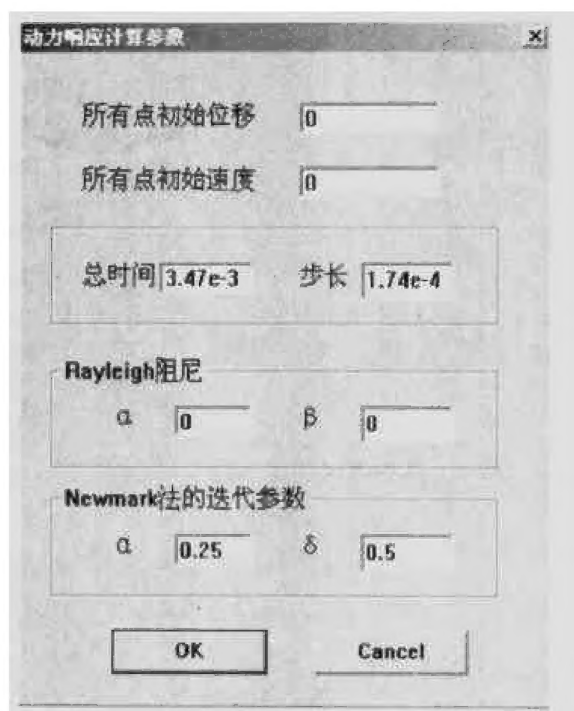 动力响应计算参数
所有点初始位移 0
所有点初始速度 0
总时间 3.47e-3 步长 1.74e-4
Rayleigh阻尼
α 0 β 0
Newmark法的迭代参数
α 0.25 δ 0.5
OK Cancel